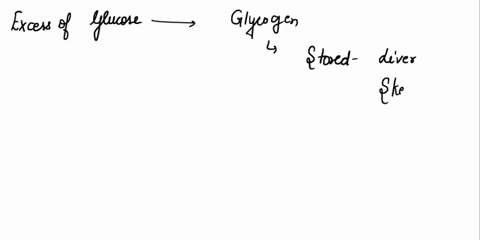 Excess of glucose → Glycogen
↳ Stored - liver
Ske